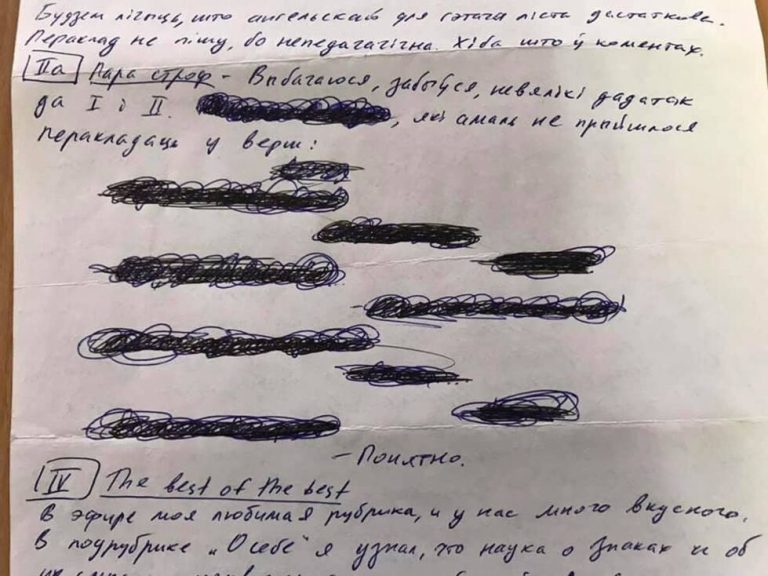 Будзем лічыць, што ангельскай для гэтага ліста дастаткова.
Пераклад не пішу, бо непедагагічна. Хіба што ў коментах.
IIa Пара строф - Выбачаюся, забыўся, невялікі дадатак
да I і II. , які амаль не прыйшлося
перакладаць у верш:
- Понятно.
IV The best of the best
В эфире моя любимая рубрика, и у нас много вкусного.
В подрубрике "О себе" я узнал, что наука о знаках и об